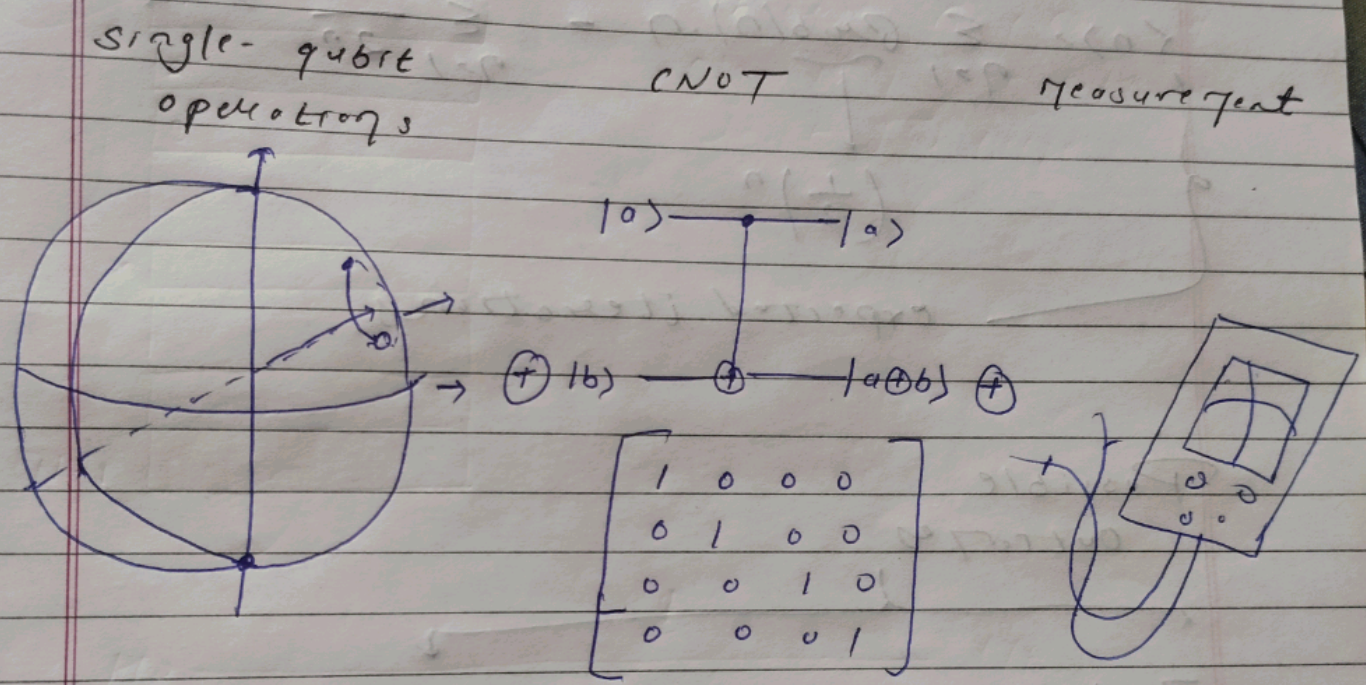 single- qubit
operations
CNOT
measurement
|a> |a>
⊕ |b> ⊕ |a⊕b> ⊕
1 0 0 0
0 1 0 0
0 0 1 0
0 0 0 1